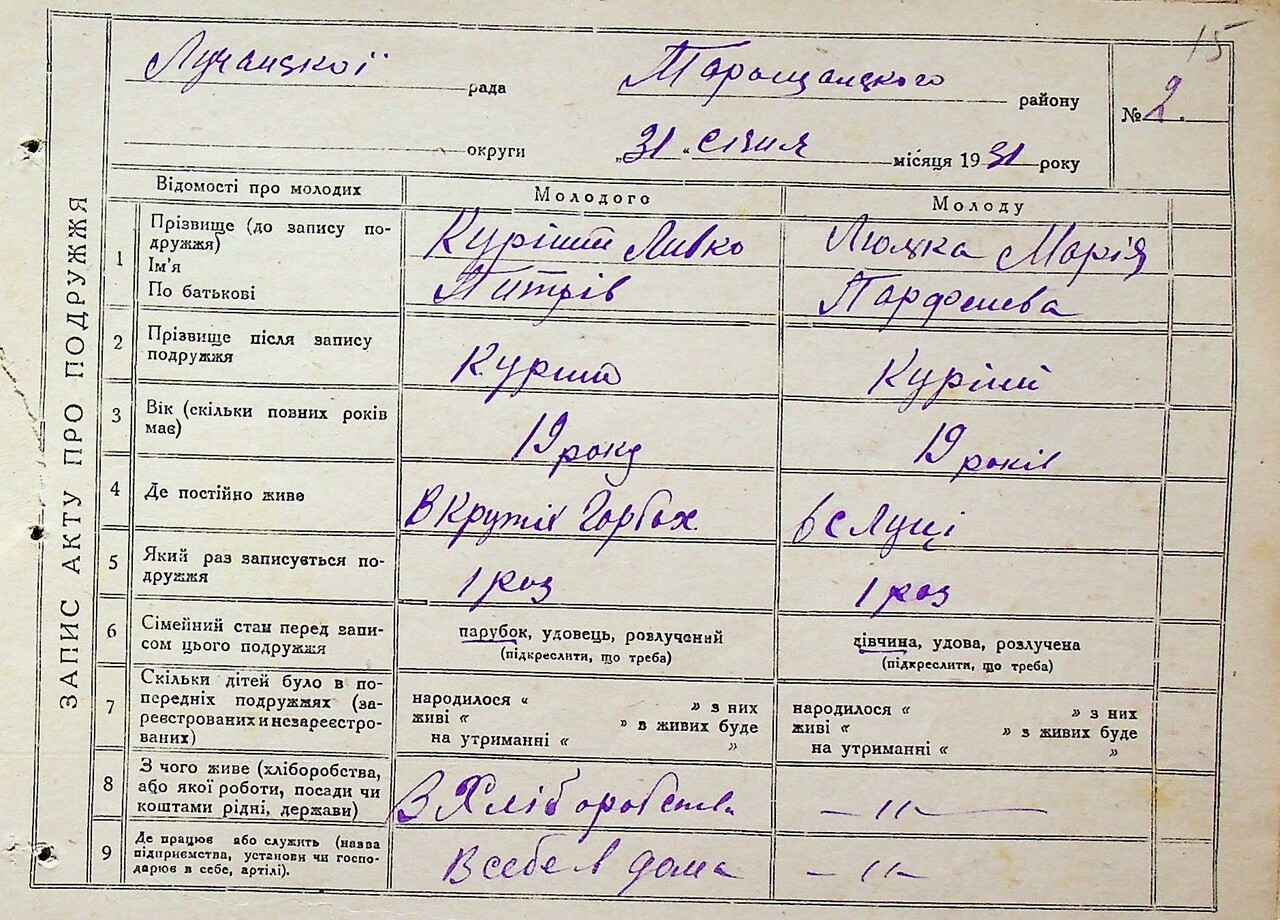 15
ЗАПИС АКТУ ПРО ПОДРУЖЖЯ
Лучанської рада Таращанського району № 2.
округи „31 “ січня місяця 1931 року
Відомості про молодих Молодого Молоду
1 Прізвище (до запису подружжя) Ім'я По батькові
Куріний Ливко
Питрів
Люлка Марія
Парфенева
2 Прізвище після запису подружжя
Куриний
Куріний
3 Вік (скільки повних років має)
19 року
19 років
4 Де постійно живе
В Крутих Горбах
в с Луці
5 Який раз записується подружжя
1 раз
1 раз
6 Сімейний стан перед записом цього подружжя
парубок, удовець, розлучений
(підкреслити, що треба)
дівчина, удова, розлучена
(підкреслити, що треба)
7 Скільки дітей було в попередніх подружжях (зареєстрованих и незареєстрованих)
народилося « » з них
живі « » в живих буде
на утриманні « »
народилося « » з них
живі « » з живих буде
на утриманні « »
8 З чого живе (хліборобства, або якої роботи, посади чи коштами рідні, держави)
З Хліборобства
— 〃 —
9 Де працює або служить (назва підприємства, установи чи господарює в себе, артілі).
В себе в дома
— 〃 —